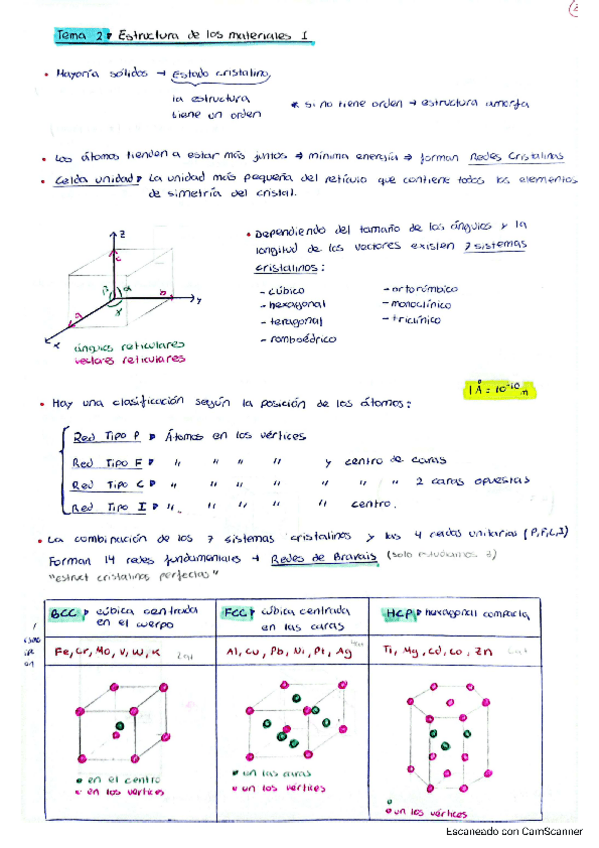 Tema 2 Estructura de los materiales I
• Mayoría sólidos → Estado cristalino,
la estructura tiene un orden
* si no tiene orden → estructura amorfa
• Los átomos tienden a estar más juntos → mínima energía → forman Redes Cristalinas
• Celda unidad: La unidad más pequeña del retículo que contiene todos los elementos
de simetría del cristal.
z
c
β α
b
y
γ
a
x
ángulos reticulares
vectores reticulares
• Dependiendo del tamaño de los ángulos y la
longitud de los vectores existen 7 sistemas
cristalinos:
- cúbico
- hexagonal
- tetragonal
- romboédrico
- ortorómbico
- monoclínico
- triclínico
1 Å = 10⁻¹⁰ m
• Hay una clasificación según la posición de los átomos:
Red Tipo P Átomos en los vértices
Red Tipo F " " " " " y centro de caras
Red Tipo C " " " " " " " 2 caras opuestas
Red Tipo I " " " " " centro.
• La combinación de los 7 sistemas cristalinos y las 4 celdas unitarias (P,F,C,I)
Forman 14 redes fundamentales → Redes de Bravais (solo estudiamos 3)
"estruct cristalinas perfectas"
BCC cúbica centrada
en el cuerpo
FCC cúbica centrada
en las caras
HCP hexagonal compacta
Fe, Cr, Mo, V, W, K
Al, Cu, Pb, Ni, Pt, Ag
Ti, Mg, Cd, Co, Zn
• en el centro
• en los vértices
• en las caras
• en los vértices
•
• en los vértices
Escaneado con CamScanner